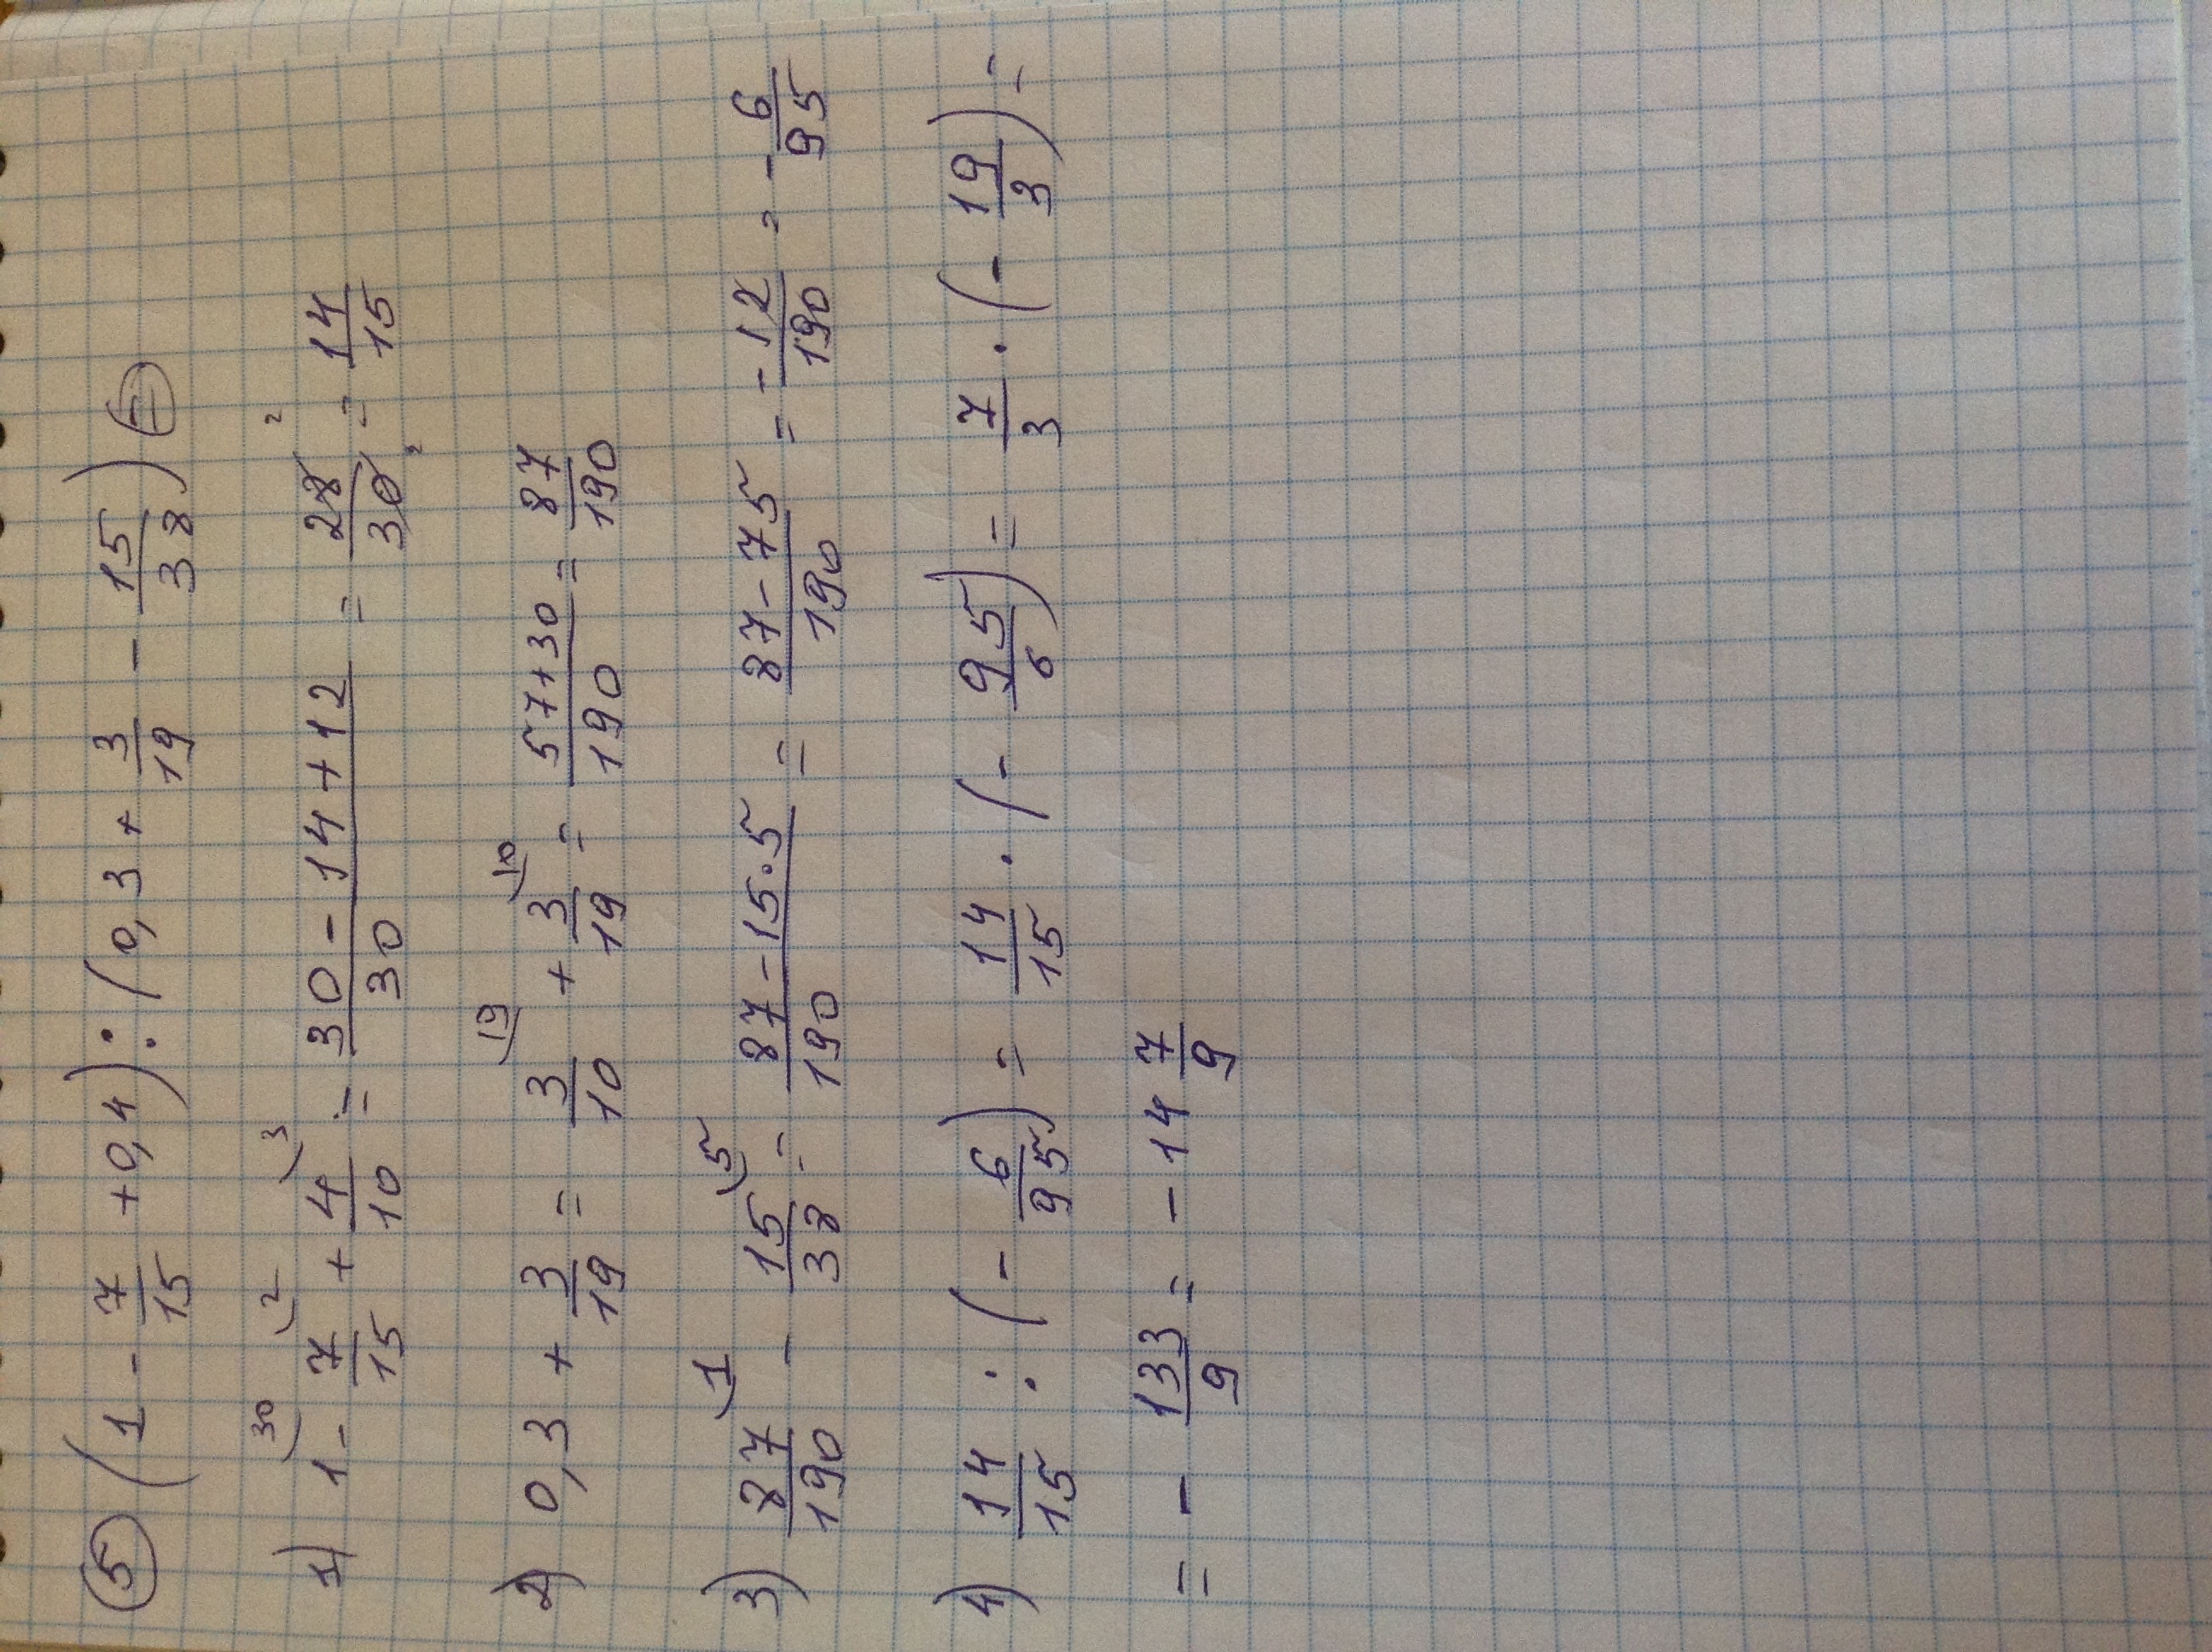 5 (1 - 7/15 + 0,4) : (0,3 + 3/19 - 15/38) =
1) 1 30) - 7/15 2) + 4/10 3) = 30 - 14 + 12/30 = 28 2/30 2 = 14/15
2) 0,3 + 3/19 = 3/10 19) + 3/19 10) = 57+30/190 = 87/190
3) 87/190 1) - 15/38 5) = 87 - 15·5/190 = 87 - 75/190 = - 12/190 = - 6/95
4) 14/15 : (- 6/95) = 14/15 · (- 95/6) = 7/3 · (- 19/3) =
= - 133/9 = - 14 7/9